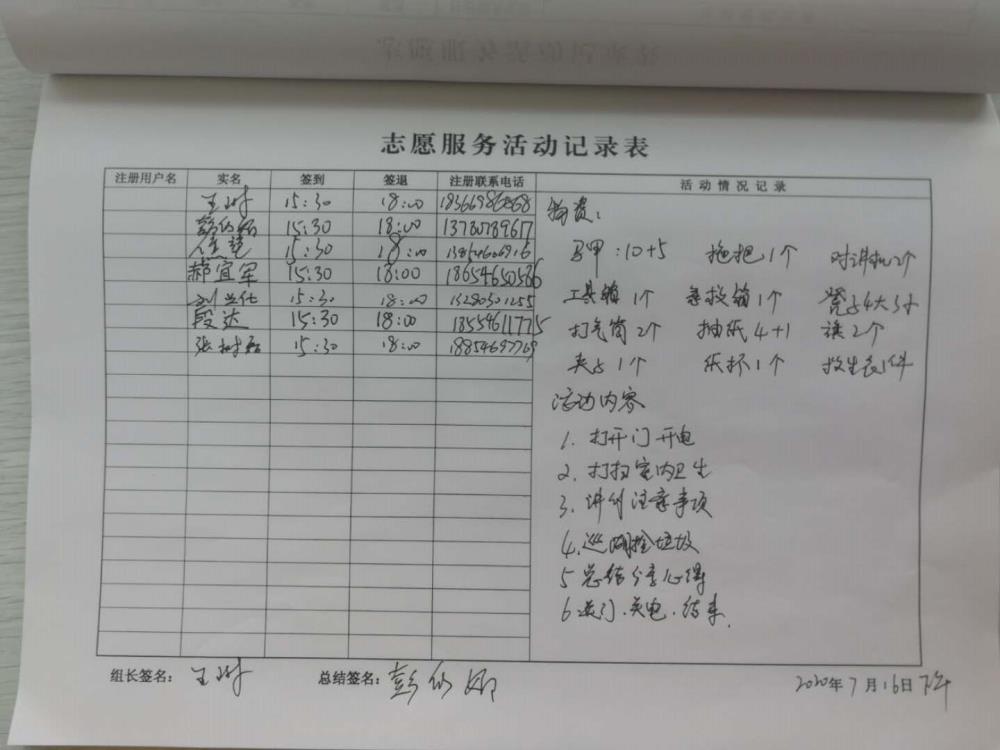 志愿服务活动记录表
注册用户名 实名 签到 签退 注册联系电话 活动情况记录
15:30 18:00
15:30 18:00 13780789617
15:30 18:00 13854606916
郝宜军 15:30 18:00
刘兰仕 15:30 18:00 13280301255
段达 15:30 18:00 18554611775
张树 15:30 18:00 18854697769
物资:
马甲:10+5 拖把1个 对讲机2个
工具箱1个 急救箱1个
打气筒2个 抽纸4+1 旗2个
夹子1个 纸杯1个 救生衣1件
活动内容
1. 打开门开电
2. 打扫室内卫生
3. 讲付注意事项
4. 巡湖捡垃圾
5 总结分享心得
6 关电.结束.
组长签名: 总结签名:彭
2020年7月16日下午